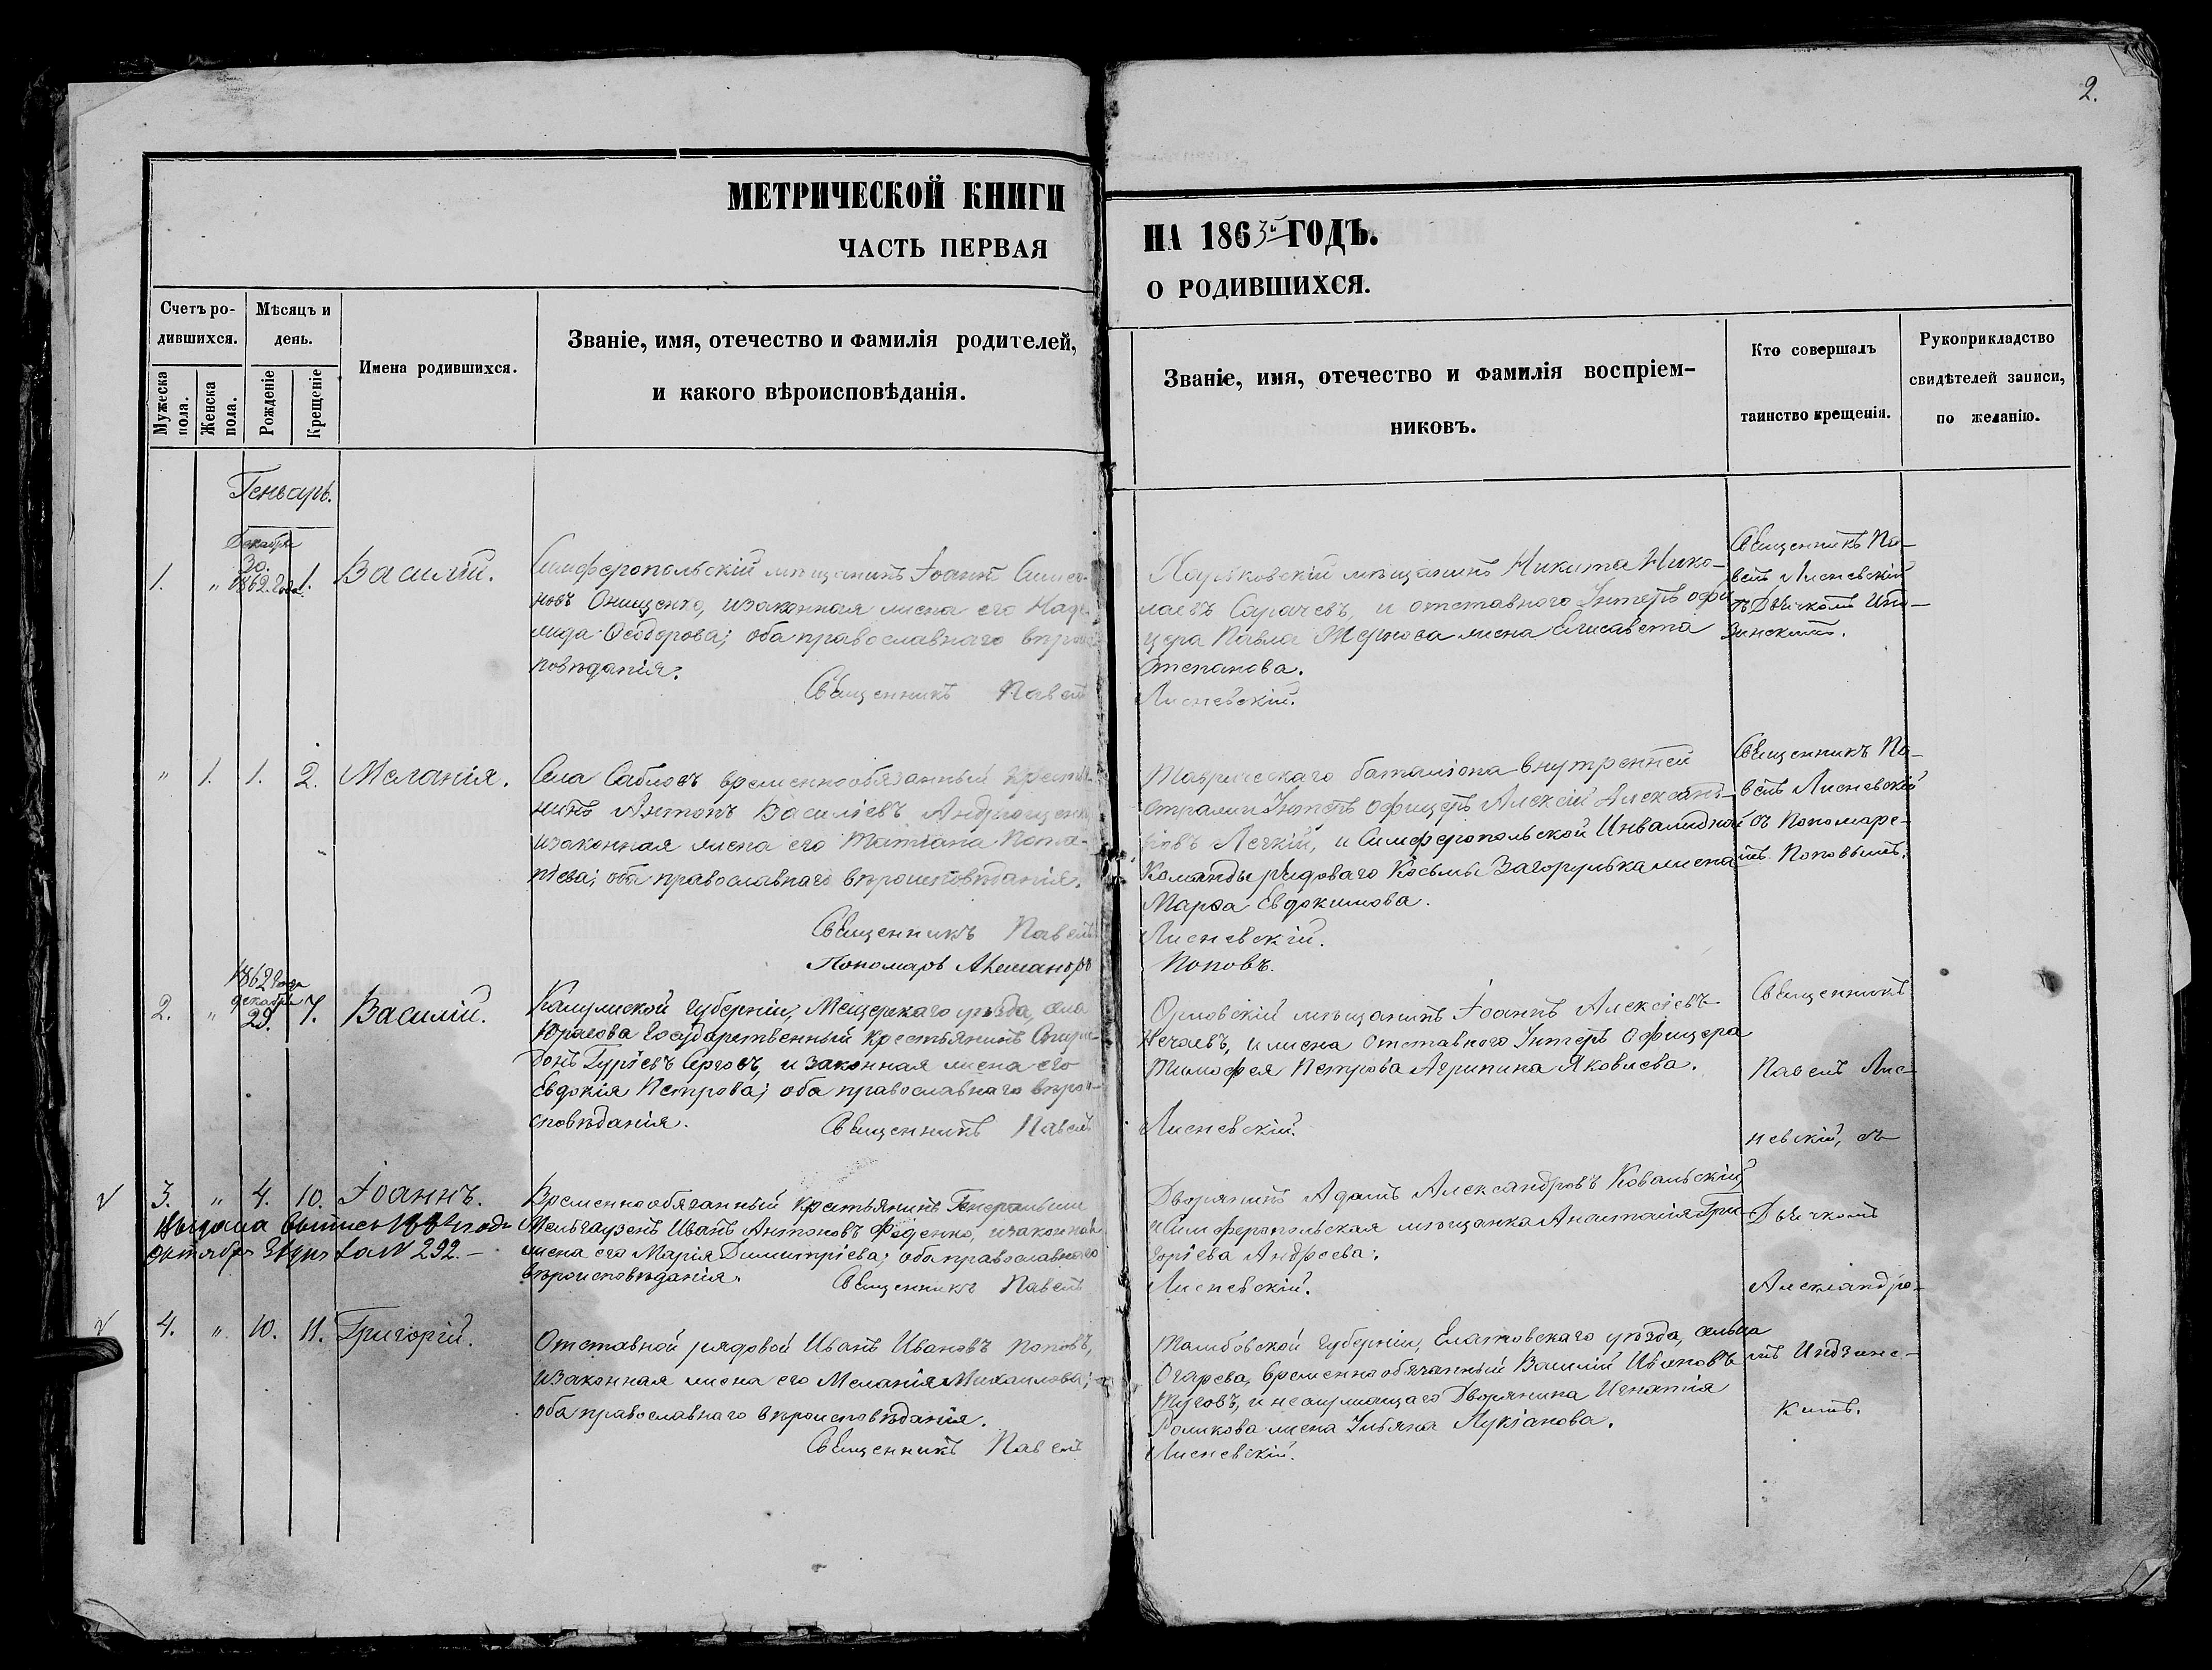 2.
МЕТРИЧЕСКОЙ КНИГИ
ЧАСТЬ ПЕРВАЯ
НА 1863й ГОДЪ.
О РОДИВШИХСЯ.
Счетъ ро-
дившихся.
Мужеска пола.
Женска пола.
Мѣсяцъ и
день.
Рожденіе
Крещеніе
Имена родившихся.
Званіе, имя, отечество и фамилія родителей,
и какого вѣроисповѣданія.
Званіе, имя, отечество и фамилія воспріем-
никовъ.
Кто совершалъ
таинство крещенія.
Рукоприкладство
свидѣтелей записи,
по желанію.
Генварь.
Декабря
30.
1862. Года
1. " 1. Василій.
Симферопольскій мѣщанинъ Іоаннъ Симео-
новъ Онищенко, изаконная жена его
Ѳеодорова; оба православнаго вѣрои
повѣданія.
Священникъ Павелъ
Харьковскій мѣщанинъ Никита Нико-
лаевъ Сарачевъ, и отставного Унтеръ офи
цера Павла Жернова жена Елисавета
Степанова.
Лисневскій.
Священникъ Па-
велъ Лисневскій
съ Дьячкомъ
" 1. 1. 2. Меланія.
Села Саблов временнообязанный крестья
нинъ Антонъ Василіевъ Андрющенко
изаконная жена его Татіана Пота-
піева; оба православнаго вѣроисповѣданія.
Священникъ Павелъ
Пономарь Александръ
Таврическаго баталіона внутренней
стражи Унтеръ офицеръ Алексій Александ-
ровъ Легкій, и Симферопольской Инвалидной
Команды рядоваго Косьмы Загорулька жена
Марѳа Евдокимова.
Лисневскій.
Поповъ.
Священникъ Па-
велъ Лисневскій
съ Пономаре-
мъ Поповымъ.
1862 Года
декабря
2. " 29. 7. Василій.
Калужской Губерніи, Мещерскаго уѣзда, села
Юрасова Государственный крестьянинъ Спири-
донъ Гуріевъ Серговъ, и законная жена его
Евдокія Петрова; оба православнаго вѣрои-
сповѣданія.
Священникъ Павелъ
Орловскій мѣщанинъ Іоаннъ Алексіевъ
Нечаевъ, и жена отставного Унтеръ офицера
Тимофея Петрова Агрипина Яковлева.
Лисневскій.
Священникъ
Павелъ Лис-
невскій, съ
3. " 4. 10. Іоаннъ.
Выдана выпись года
октября за № 292.
Временнообязанный крестьянинъ Генеральши
Мельгаузенъ Иванъ Антоновъ Фоденко, изаконная
жена его Марія Димитріева; оба православнаго
вѣроисповѣданія.
Священникъ Павелъ
Дворянинъ Адамъ Александровъ Ковальскій,
и Симферопольская мѣщанка Анастасія Гри-
горіева Андреева.
Лисневскій.
Дьячкомъ
Александро-
4. " 10. 11. Григорій.
Отставной рядовой Иванъ Ивановъ Поповъ,
изаконная жена его Меланія Михаилова;
оба православнаго вѣроисповѣданія.
Священникъ Павелъ
Тамбовской Губерніи, Елатовскаго уѣзда, сельца
Огарева, временнообязанный Василій Ивановъ
Туговъ, и Дворянина Игнатія
Роликова жена Ульяна Лукіанова.
Лисневскій.
мъ Индзинс-
кимъ.